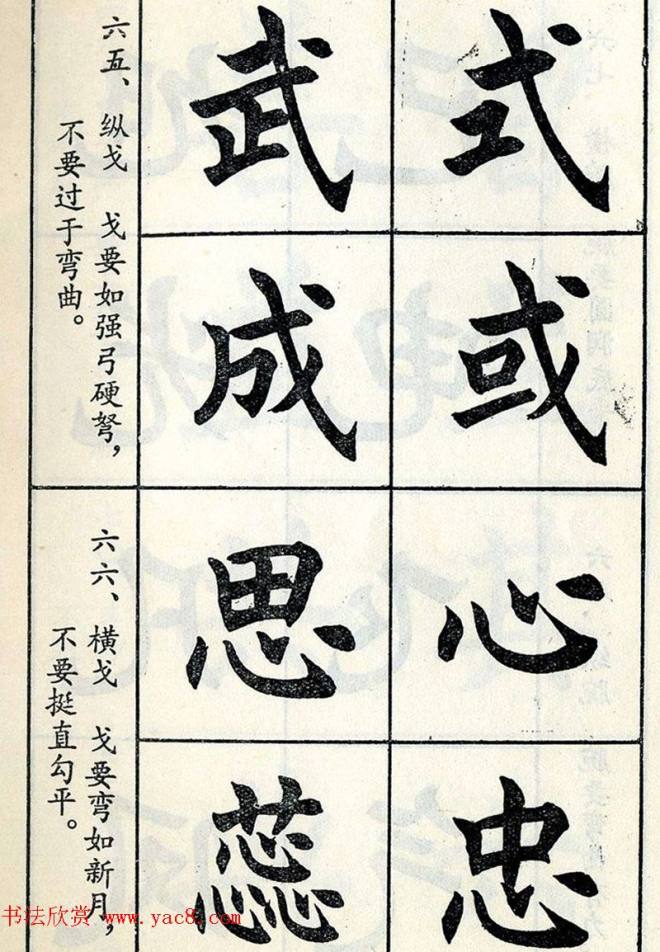 六五、纵戈 戈要如强弓硬弩，
不要过于弯曲。
式
武
或
成
六六、横戈 戈要弯如新月，
不要挺直勾平。
心
思
忠
蕊
书法欣赏 www.yac8.com